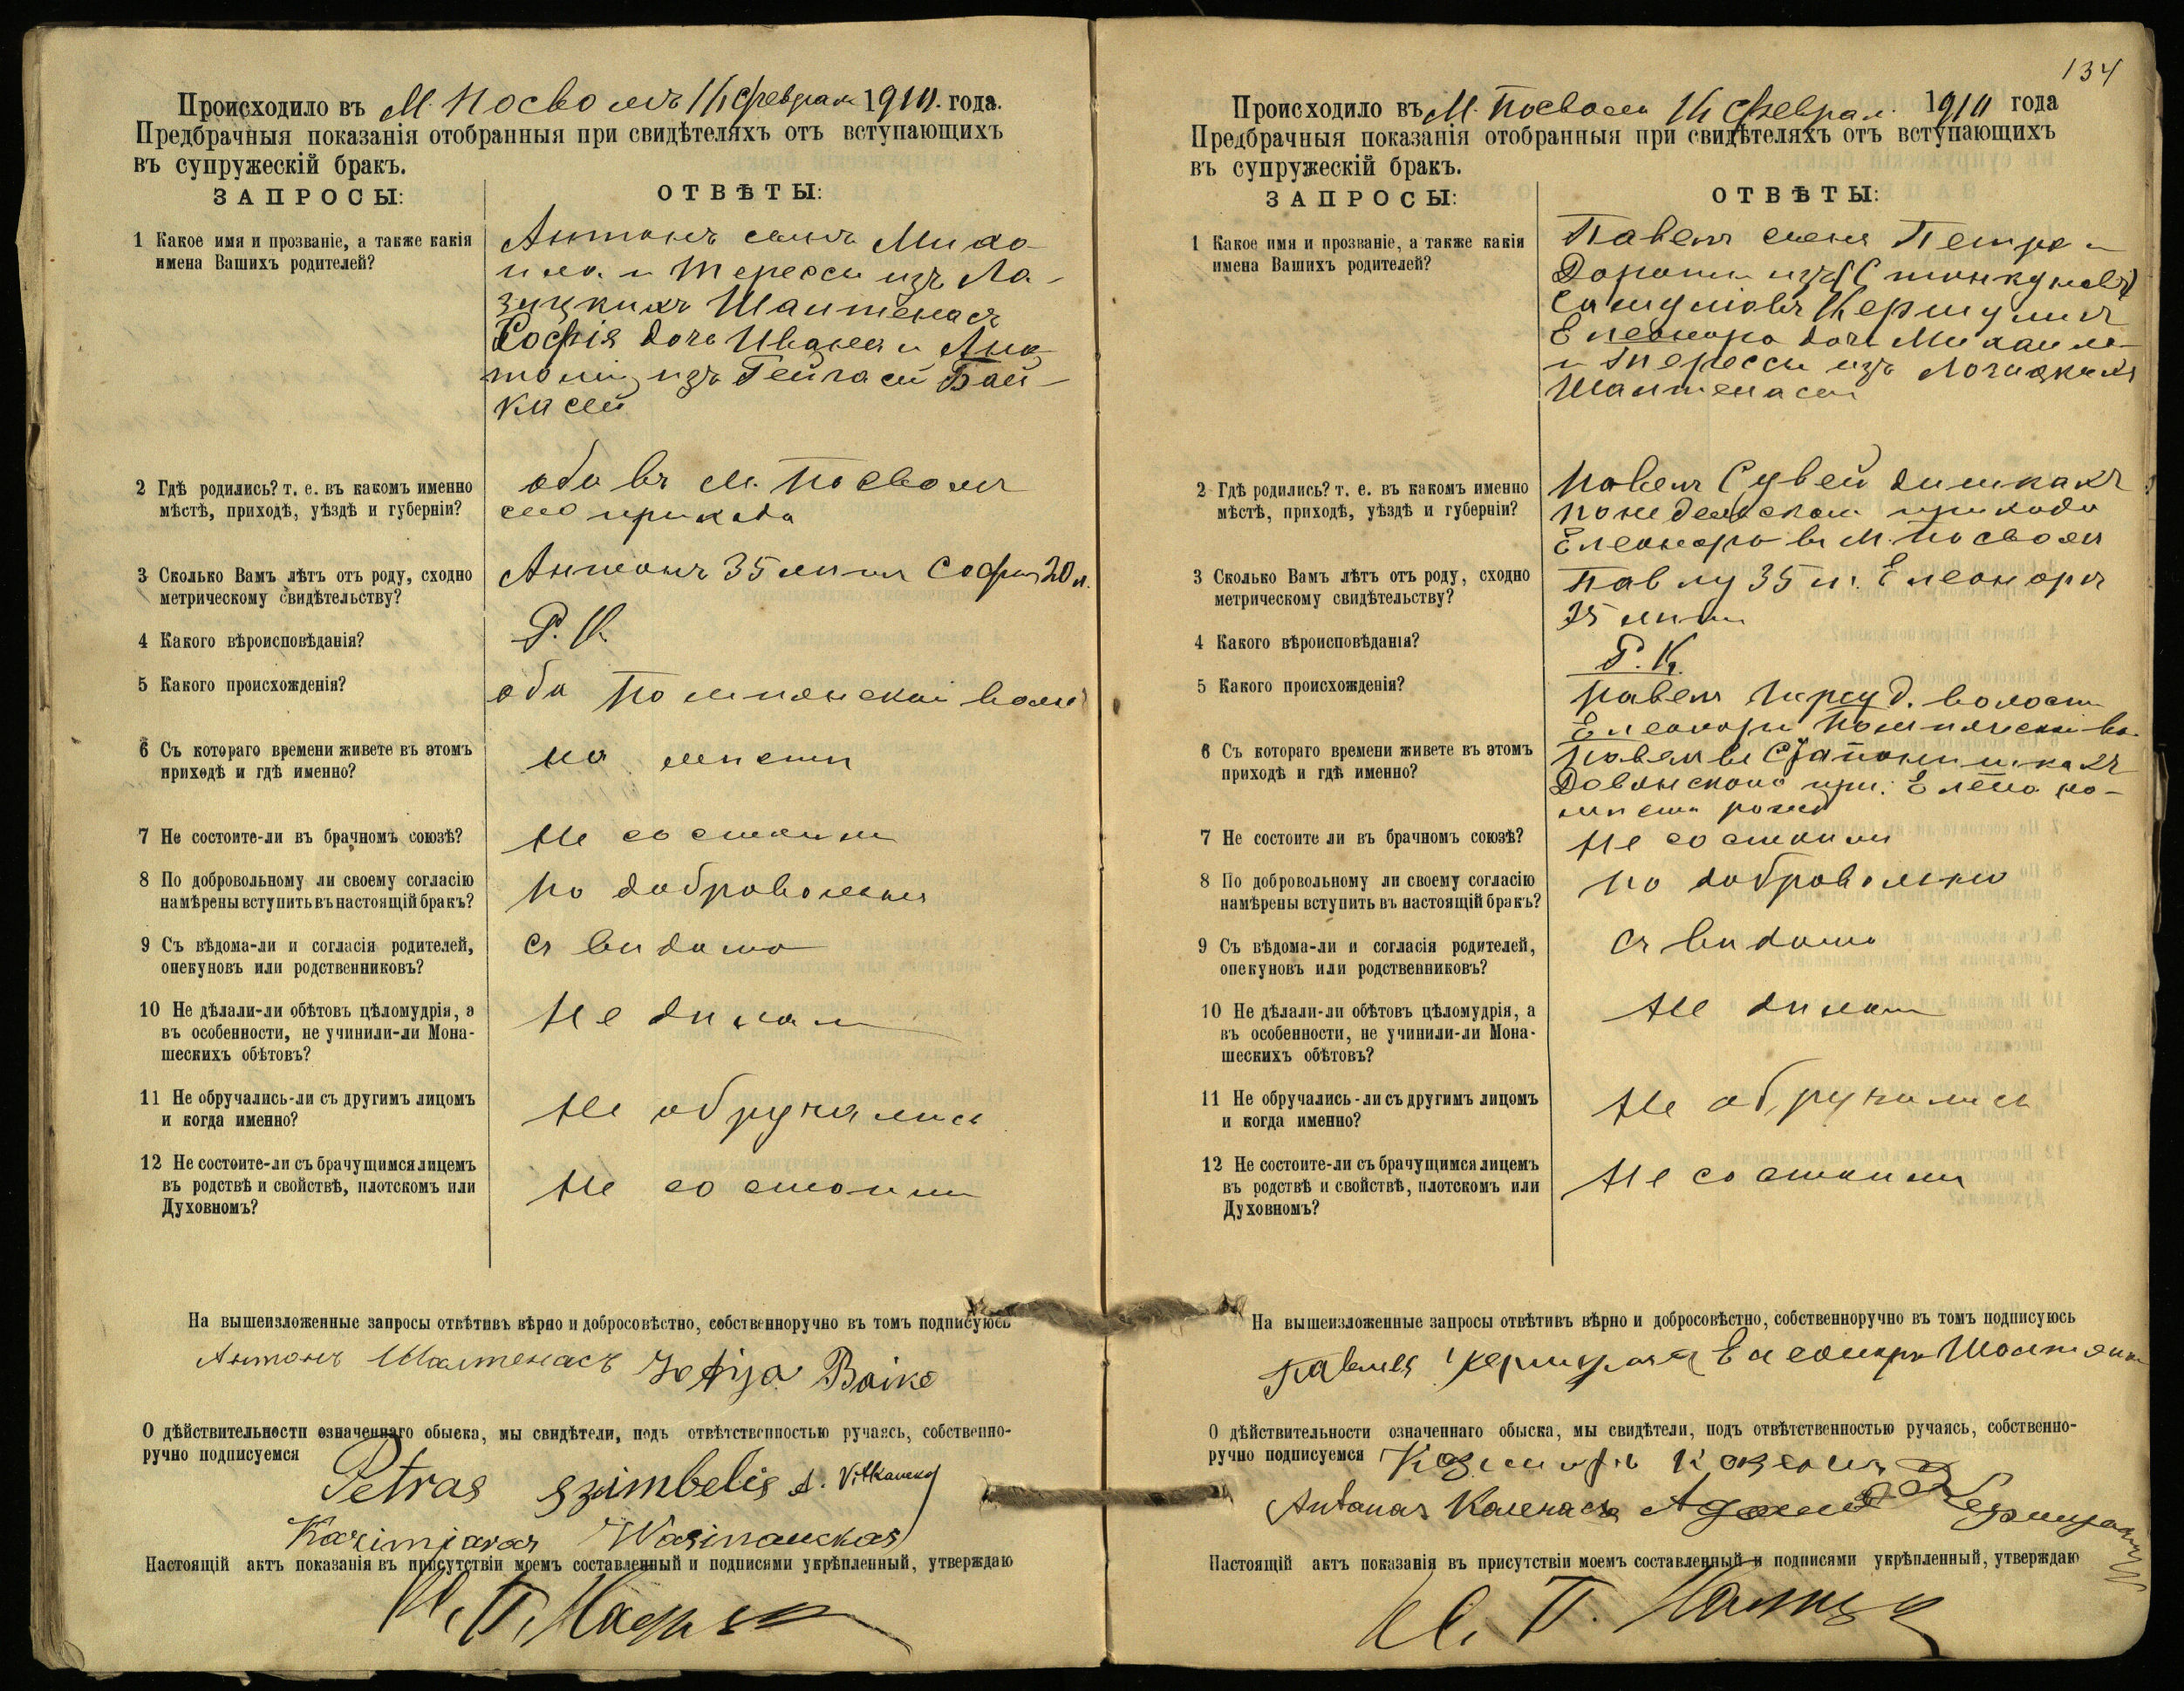 Происходило въ М. Посволь 14 Февраля 1911. года.
Предбрачныя показанія отобранныя при свидѣтеляхъ отъ вступающихъ
въ супружескій бракъ.
ЗАПРОСЫ:
ОТВѢТЫ:
1 Какое имя и прозваніе, а также какія
имена Вашихъ родителей?
Антонъ сынъ Миха
ила и Терессы изъ Ла-
зуцкихъ Шалтенасъ
Софія дочь Ивана и Ана
толіи изъ
2 Гдѣ родились? т. е. въ какомъ именно
мѣстѣ, приходѣ, уѣздѣ и губерніи?
оба въ М. Посволь
сего прихода
3 Сколько Вамъ лѣтъ отъ роду, сходно
метрическому свидѣтельству?
Антонъ 35 лѣтъ Софія 20 л.
4 Какого вѣроисповѣданія?
Р. К.
5 Какого происхожденія?
оба Помпянской волос
6 Съ котораго времени живете въ этомъ
приходѣ и гдѣ именно?
на мѣстѣ
7 Не состоите-ли въ брачномъ союзѣ?
Не состоимъ
8 По добровольному ли своему согласію
намѣрены вступить въ настоящій бракъ?
по добровольно
9 Съ вѣдома-ли и согласія родителей,
опекуновъ или родственниковъ?
съ вѣдома
10 Не дѣлали-ли обѣтовъ цѣломудрія, а
въ особенности, не учинили-ли Мона-
шескихъ обѣтовъ?
Не дѣлали
11 Не обручались-ли съ другимъ лицомъ
и когда именно?
Не обручались
12 Не состоите-ли съ брачущимся лицемъ
въ родствѣ и свойствѣ, плотскомъ или
Духовномъ?
Не состоимъ
На вышеизложенные запросы отвѣтивъ вѣрно и добросовѣстно, собственноручно въ томъ подписуюсь
Антонъ Шалтенасъ Zofija Baike
О дѣйствительности означеннаго обыска, мы свидѣтели, подъ отвѣтственностью ручаясь, собственно-
ручно подписуемся
Petras Szimbelis A. Vitkauskas
Kazimjaras
Настоящій актъ показанія въ присутствіи моемъ составленный и подписями укрѣпленный, утверждаю
134
Происходило въ М. Посволь 14 Феврал. 1911 года
Предбрачныя показанія отобранныя при свидѣтеляхъ отъ вступающихъ
въ супружескій бракъ.
ЗАПРОСЫ:
ОТВѢТЫ:
1 Какое имя и прозваніе, а также какія
имена Вашихъ родителей?
Павелъ сынъ Петра и
Дороты изъ
Елеонора дочь Михаила
и Терессы изъ
Шалтенасъ
2 Гдѣ родились? т. е. въ какомъ именно
мѣстѣ, приходѣ, уѣздѣ и губерніи?
Павелъ
прихода
Елеонора въ М. Посволь
3 Сколько Вамъ лѣтъ отъ роду, сходно
метрическому свидѣтельству?
Павлу 35 л. Елеонорѣ
лѣтъ
4 Какого вѣроисповѣданія?
Р. К.
5 Какого происхожденія?
Павелъ волости
Елеонора Помпянской во.
6 Съ котораго времени живете въ этомъ
приходѣ и гдѣ именно?
Павелъ въ
7 Не состоите ли въ брачномъ союзѣ?
Не состоимъ
8 По добровольному ли своему согласію
намѣрены вступить въ настоящій бракъ?
по добровольно
9 Съ вѣдома-ли и согласія родителей,
опекуновъ или родственниковъ?
съ вѣдома
10 Не дѣлали-ли обѣтовъ цѣломудрія, а
въ особенности, не учинили-ли Мона-
шескихъ обѣтовъ?
Не дѣлали
11 Не обручались-ли съ другимъ лицомъ
и когда именно?
Не обручались
12 Не состоите-ли съ брачущимся лицемъ
въ родствѣ и свойствѣ, плотскомъ или
Духовномъ?
Не состоимъ
На вышеизложенные запросы отвѣтивъ вѣрно и добросовѣстно, собственноручно въ томъ подписуюсь
Елеонора
О дѣйствительности означеннаго обыска, мы свидѣтели, подъ отвѣтственностью ручаясь, собственно-
ручно подписуемся Казимиръ
Antanas
Настоящій актъ показанія въ присутствіи моемъ составленный и подписями укрѣпленный, утверждаю